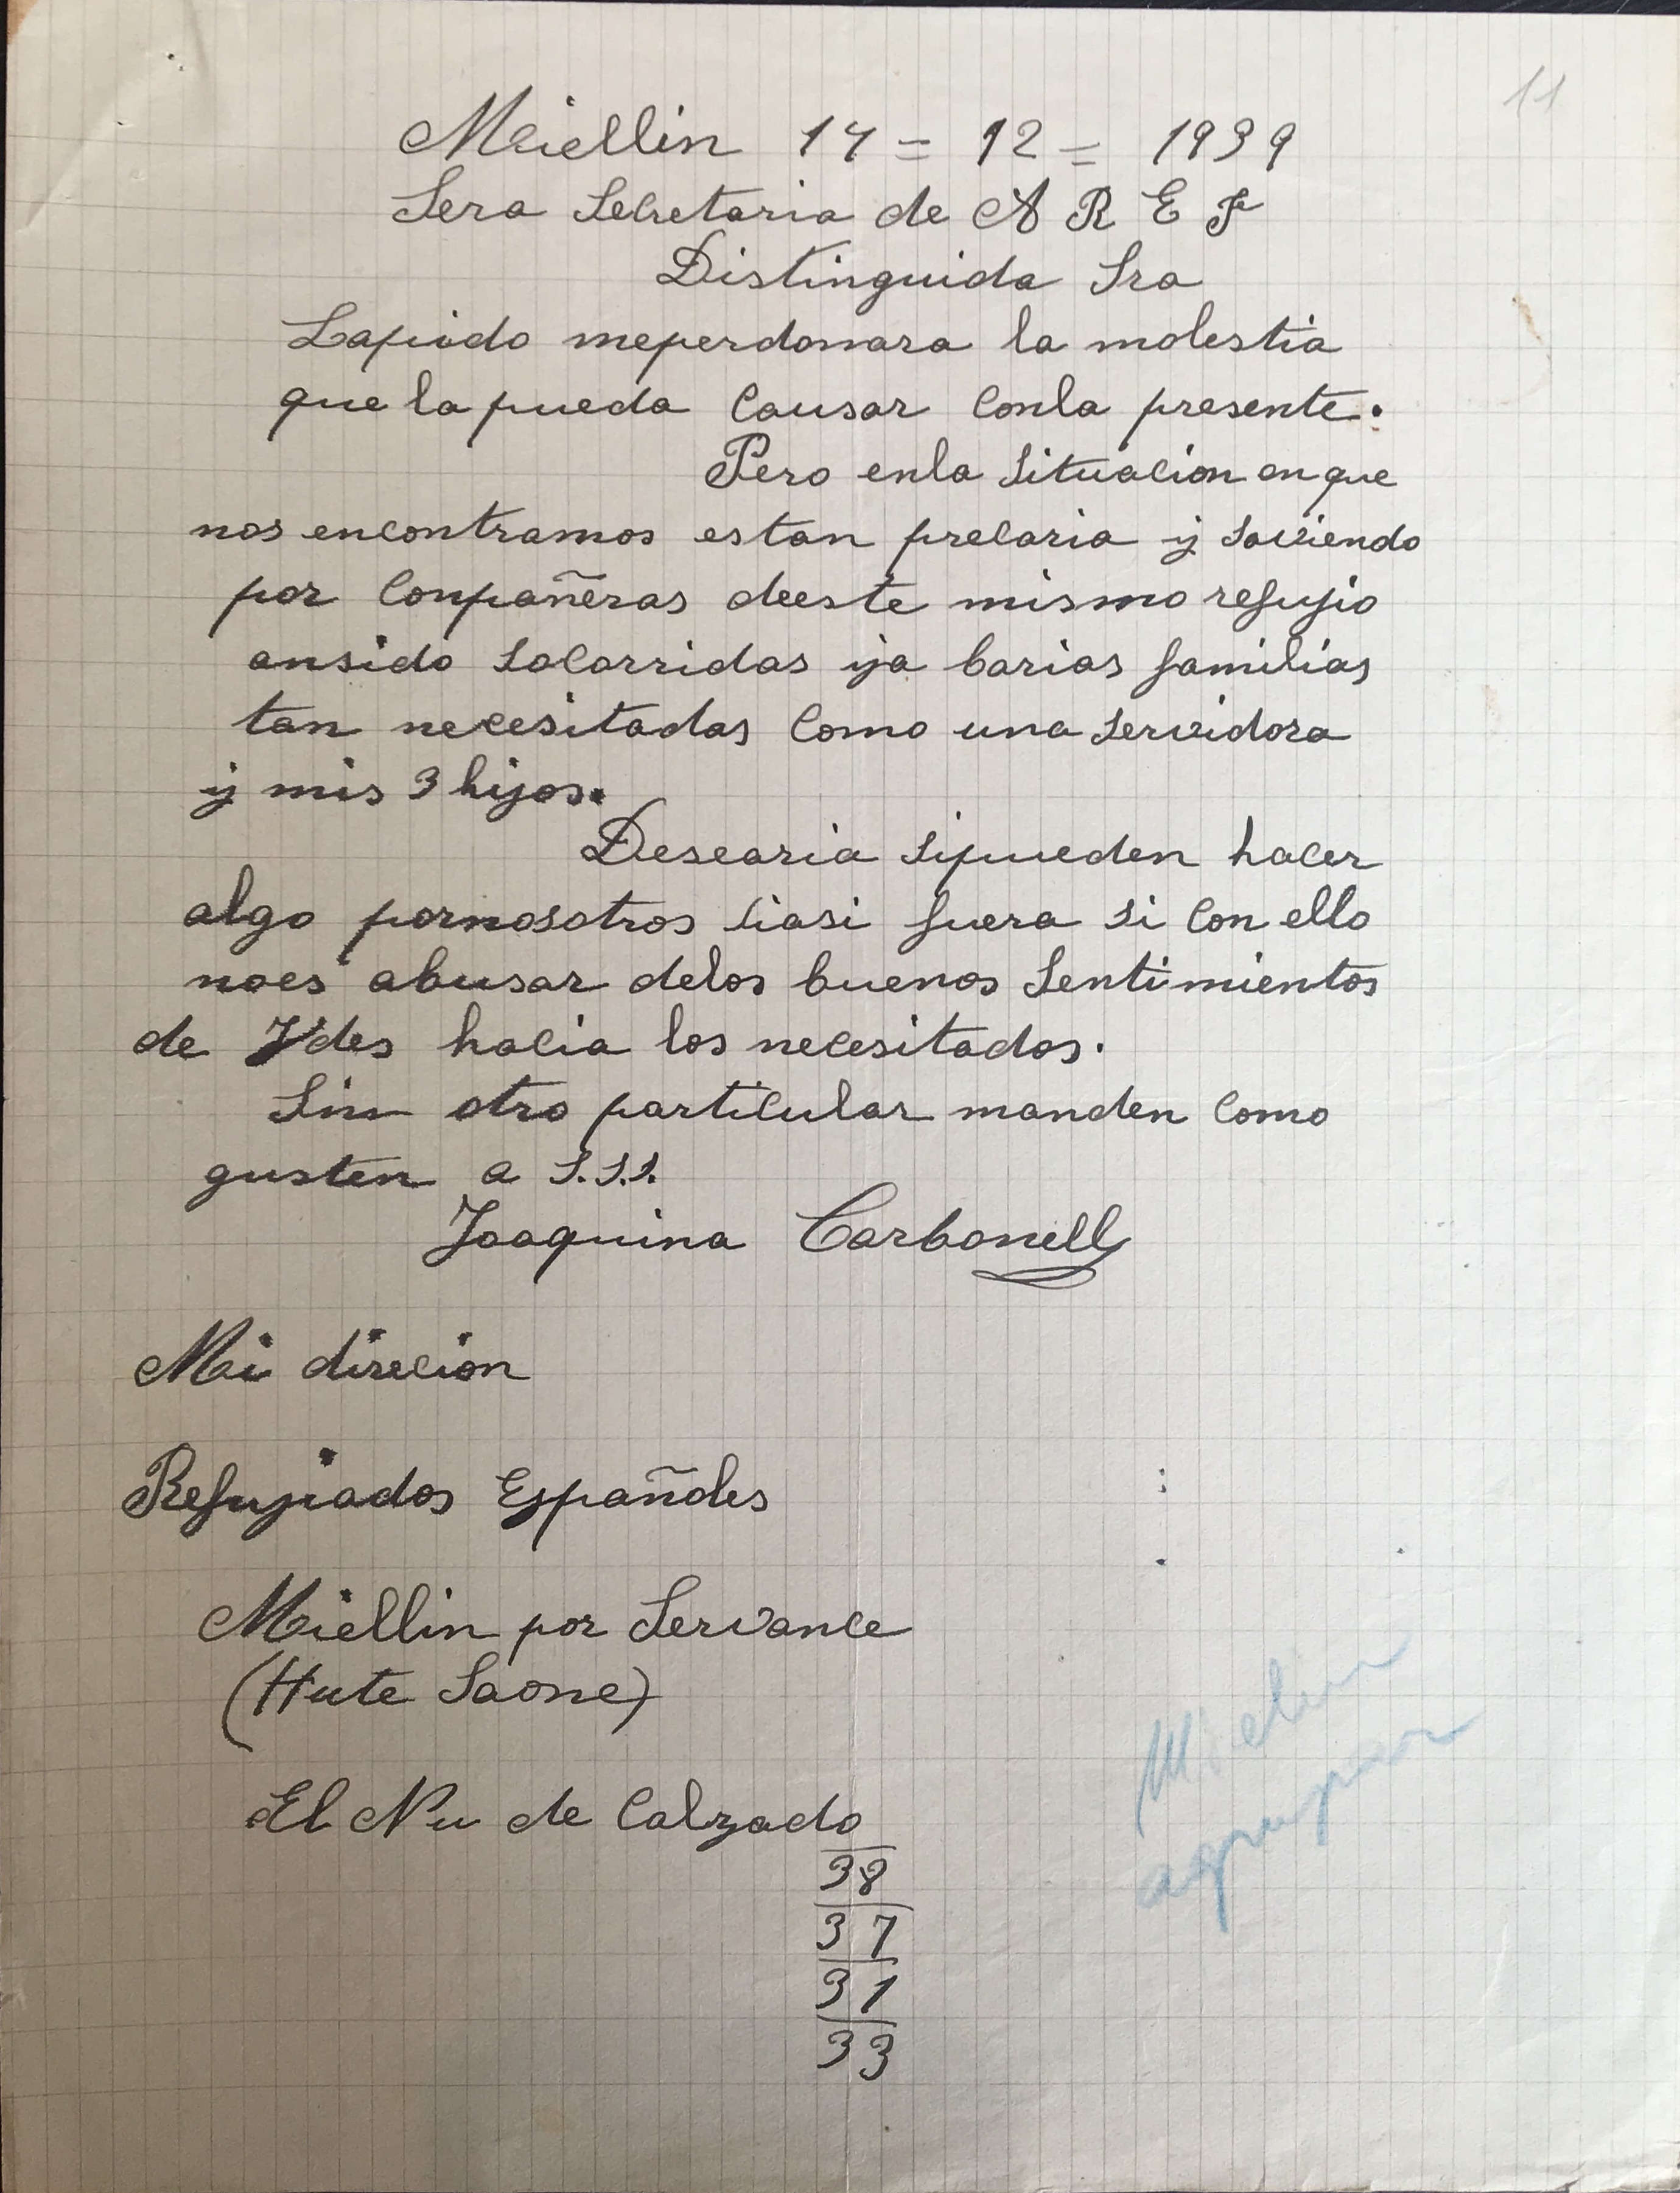 11
Miellin 14 = 12 = 1939
Sera Secretaria de A R E F
Distinguida Sra
Lapido meperdonara la molestia
que la pueda causar conla presente.
Pero enla situacion en que
nos encontramos estan precaria y saviendo
por conpañeras deeste mismo refujio
ansido socorridas ya barias familias
tan necesitadas como una servidora
y mis 3 hijos.
Desearia sipueden hacer
algo pornosotros siasi fuera si con ello
noes abusar delos buenos sentimientos
de Vdes hacia los necesitados.
Sin otro particular manden como
gusten a S.S.S.
Joaquina Carbonell
Mi direcion
Refujiados Españoles
Miellin por Servance
(Hute Saone)
El Nu de calzado
38
37
31
33